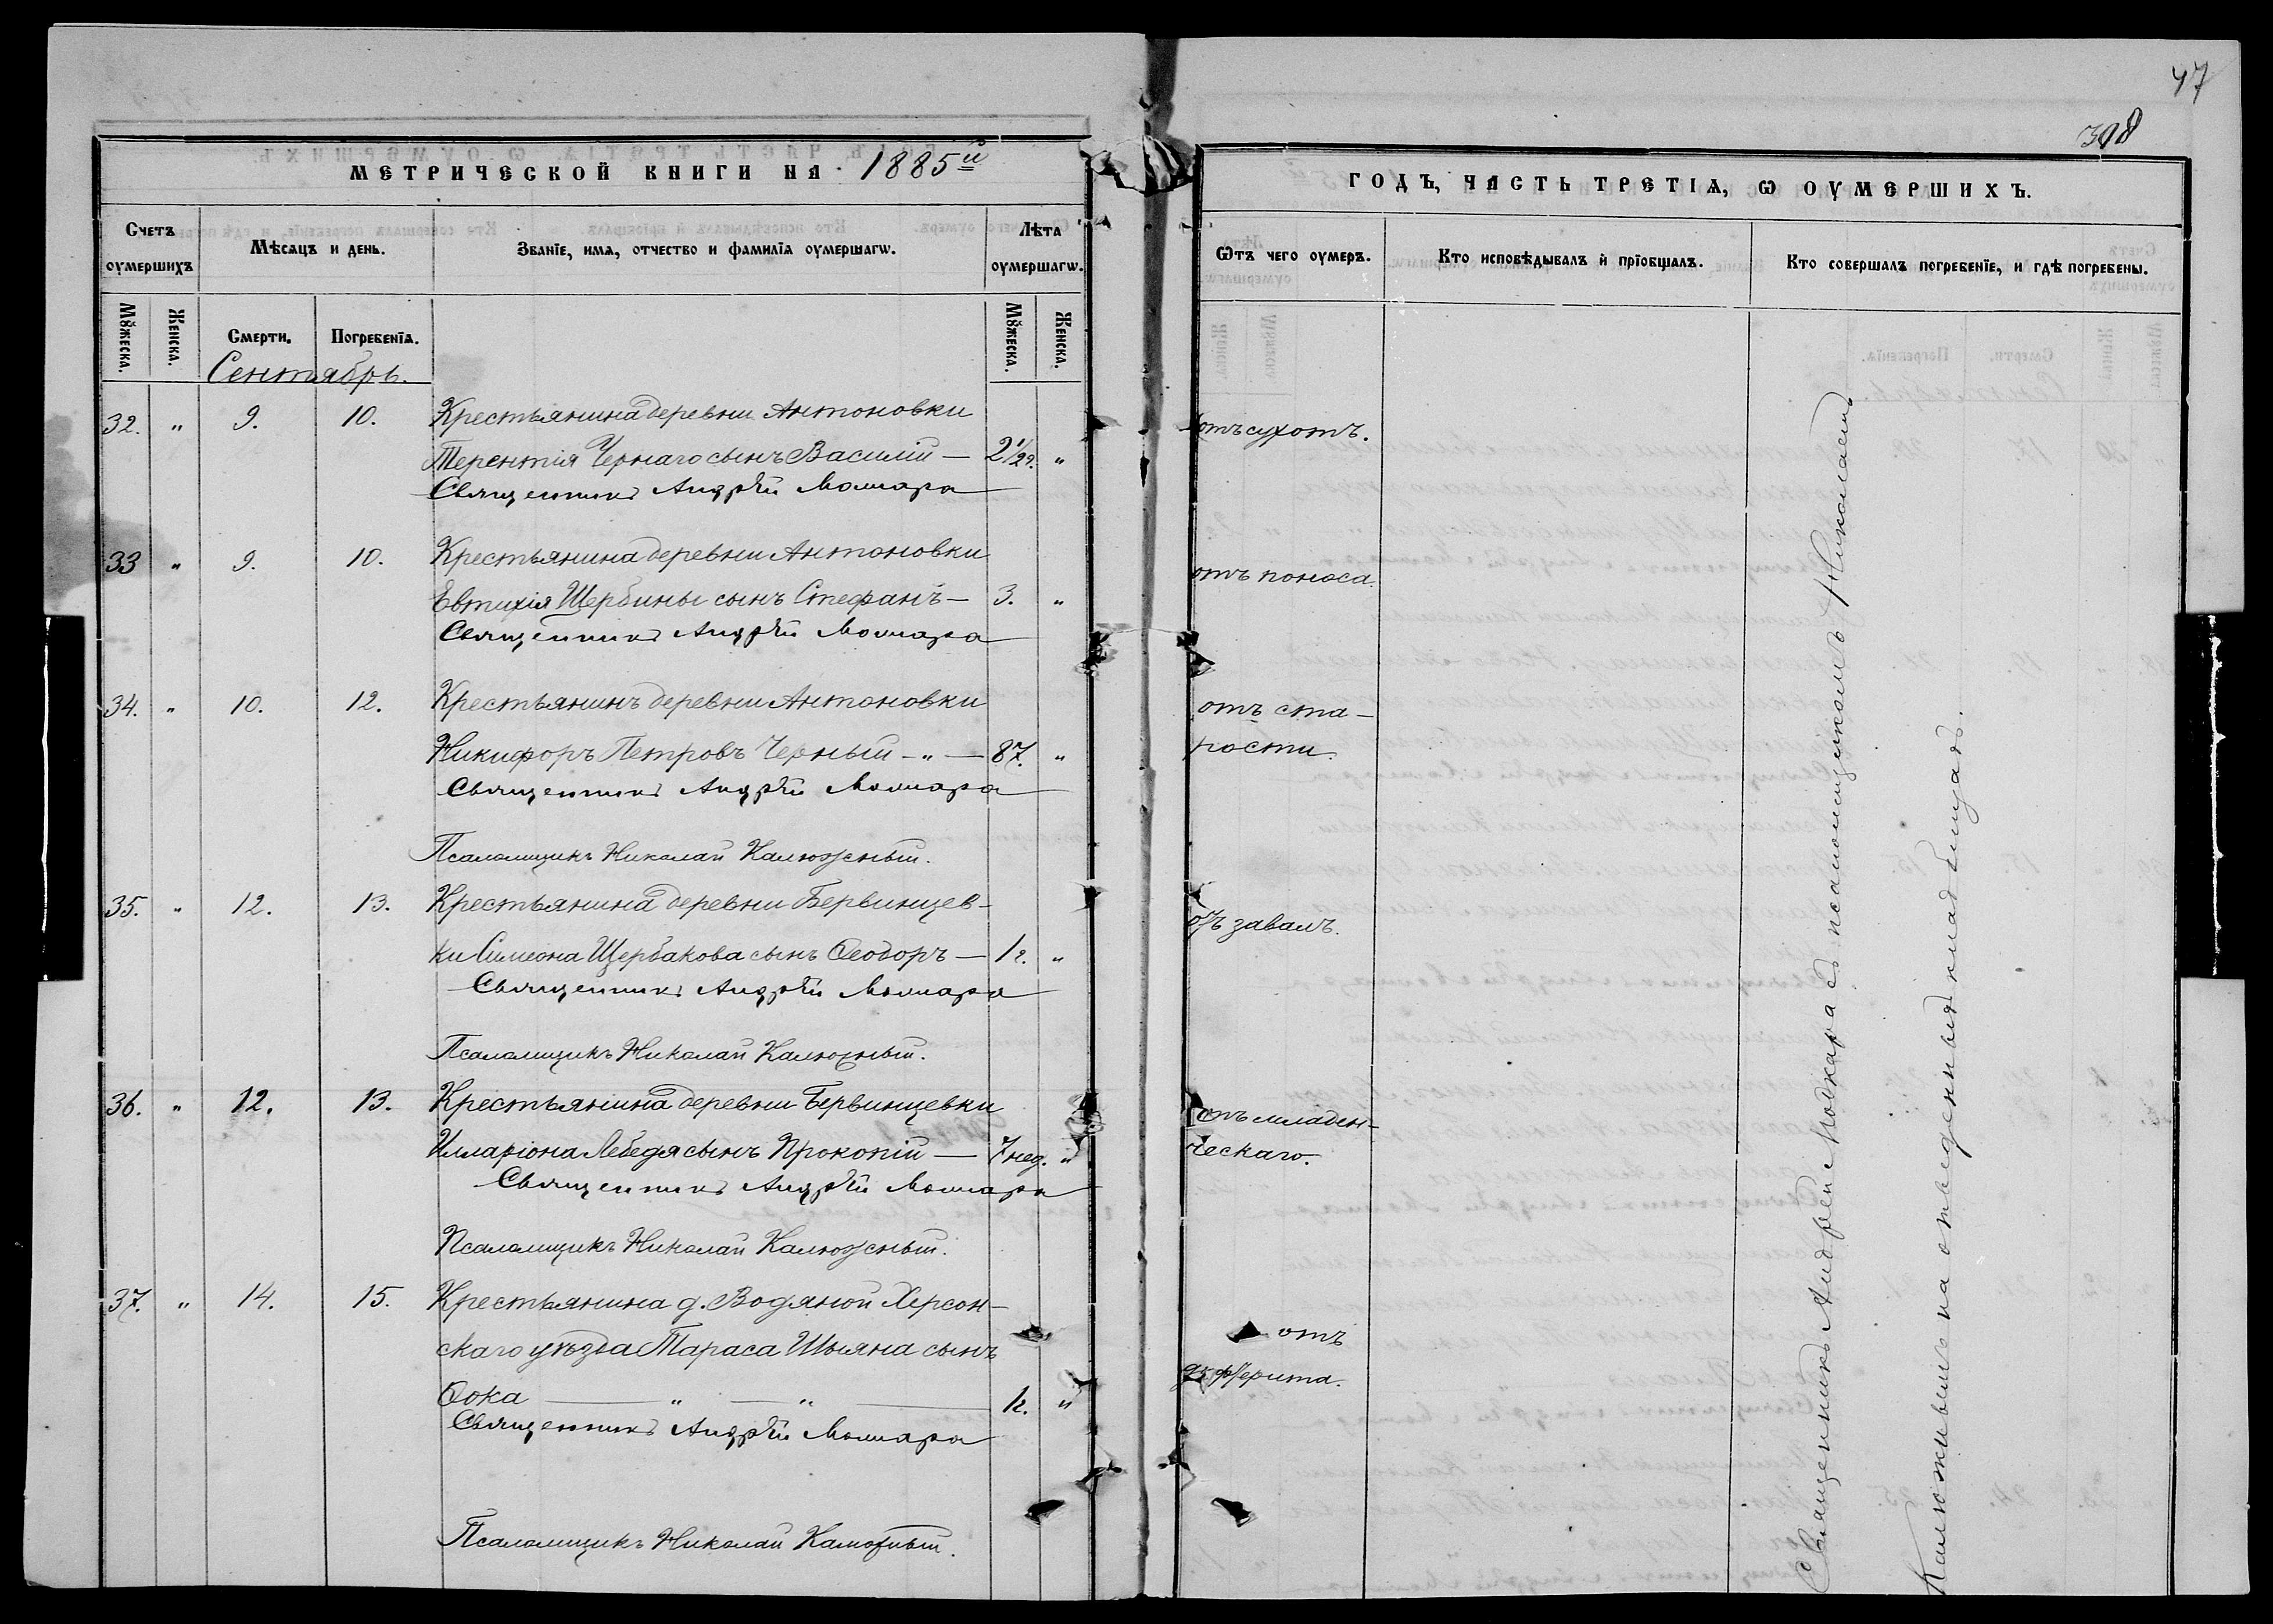 47
308
МЕТРИЧЕСКОЙ КНИГИ НА 1885й
ГОДЪ, ЧАСТЬ ТРЕТІЯ, Ѡ ОУМЕРШИХЪ.
Счетъ оумершихъ
Мѣсяцъ и день.
Званіе, имя, отчество и фамилія оумершагѡ.
Лѣта оумершагѡ.
Ѿтъ чего оумеръ.
Кто исповѣдывалъ и пріобщалъ.
Кто совершалъ погребеніе, и гдѣ погребены.
Мꙋжеска. Женска. Смерти. Погребенія. Мꙋжеска. Женска.
Сентябрь.
32. " 9. 10. Крестьянина деревни Антоновки
Терентія Чернаго сынъ Василій — 2½г. " отъ сухотъ.
Священникъ Андрѣй
33 " 9. 10. Крестьянина деревни Антоновки
отъ поноса.
Евтихія Щербины сынъ Стефанъ — 3. "
Священникъ Андрѣй
34. " 10. 12. Крестьянинъ деревни Антоновки
отъ ста-
Никифоръ Петровъ Черный — " — 87. " рости.
Священникъ Андрѣй
Псаломщикъ Николай Калюжный.
35. " 12. 13. Крестьянина деревни Бервинцев-
отъ завалъ.
ки Симеона Щербакова сынъ Ѳеодоръ — 1г. "
Священникъ Андрѣй
Псаломщикъ Николай Калюжный.
36. " 12. 13. Крестьянина деревни Бервинцевки
отъ младен-
Илларіона Лебедя сынъ Прокопій — 7 нед. " ческаго.
Священникъ Андрѣй
Псаломщикъ Николай Калюжный.
37. " 14. 15. Крестьянина д. Водяной Херсон-
скаго уѣзда Тараса сынъ
отъ
Ѳока — " — " — 1г. " дифтерита.
Священникъ Андрѣй
Псаломщикъ Николай Калюжный.
Священникъ Андрей съ псаломщикомъ Николаемъ
Калюжнымъ на отведенныхъ кладбищахъ.